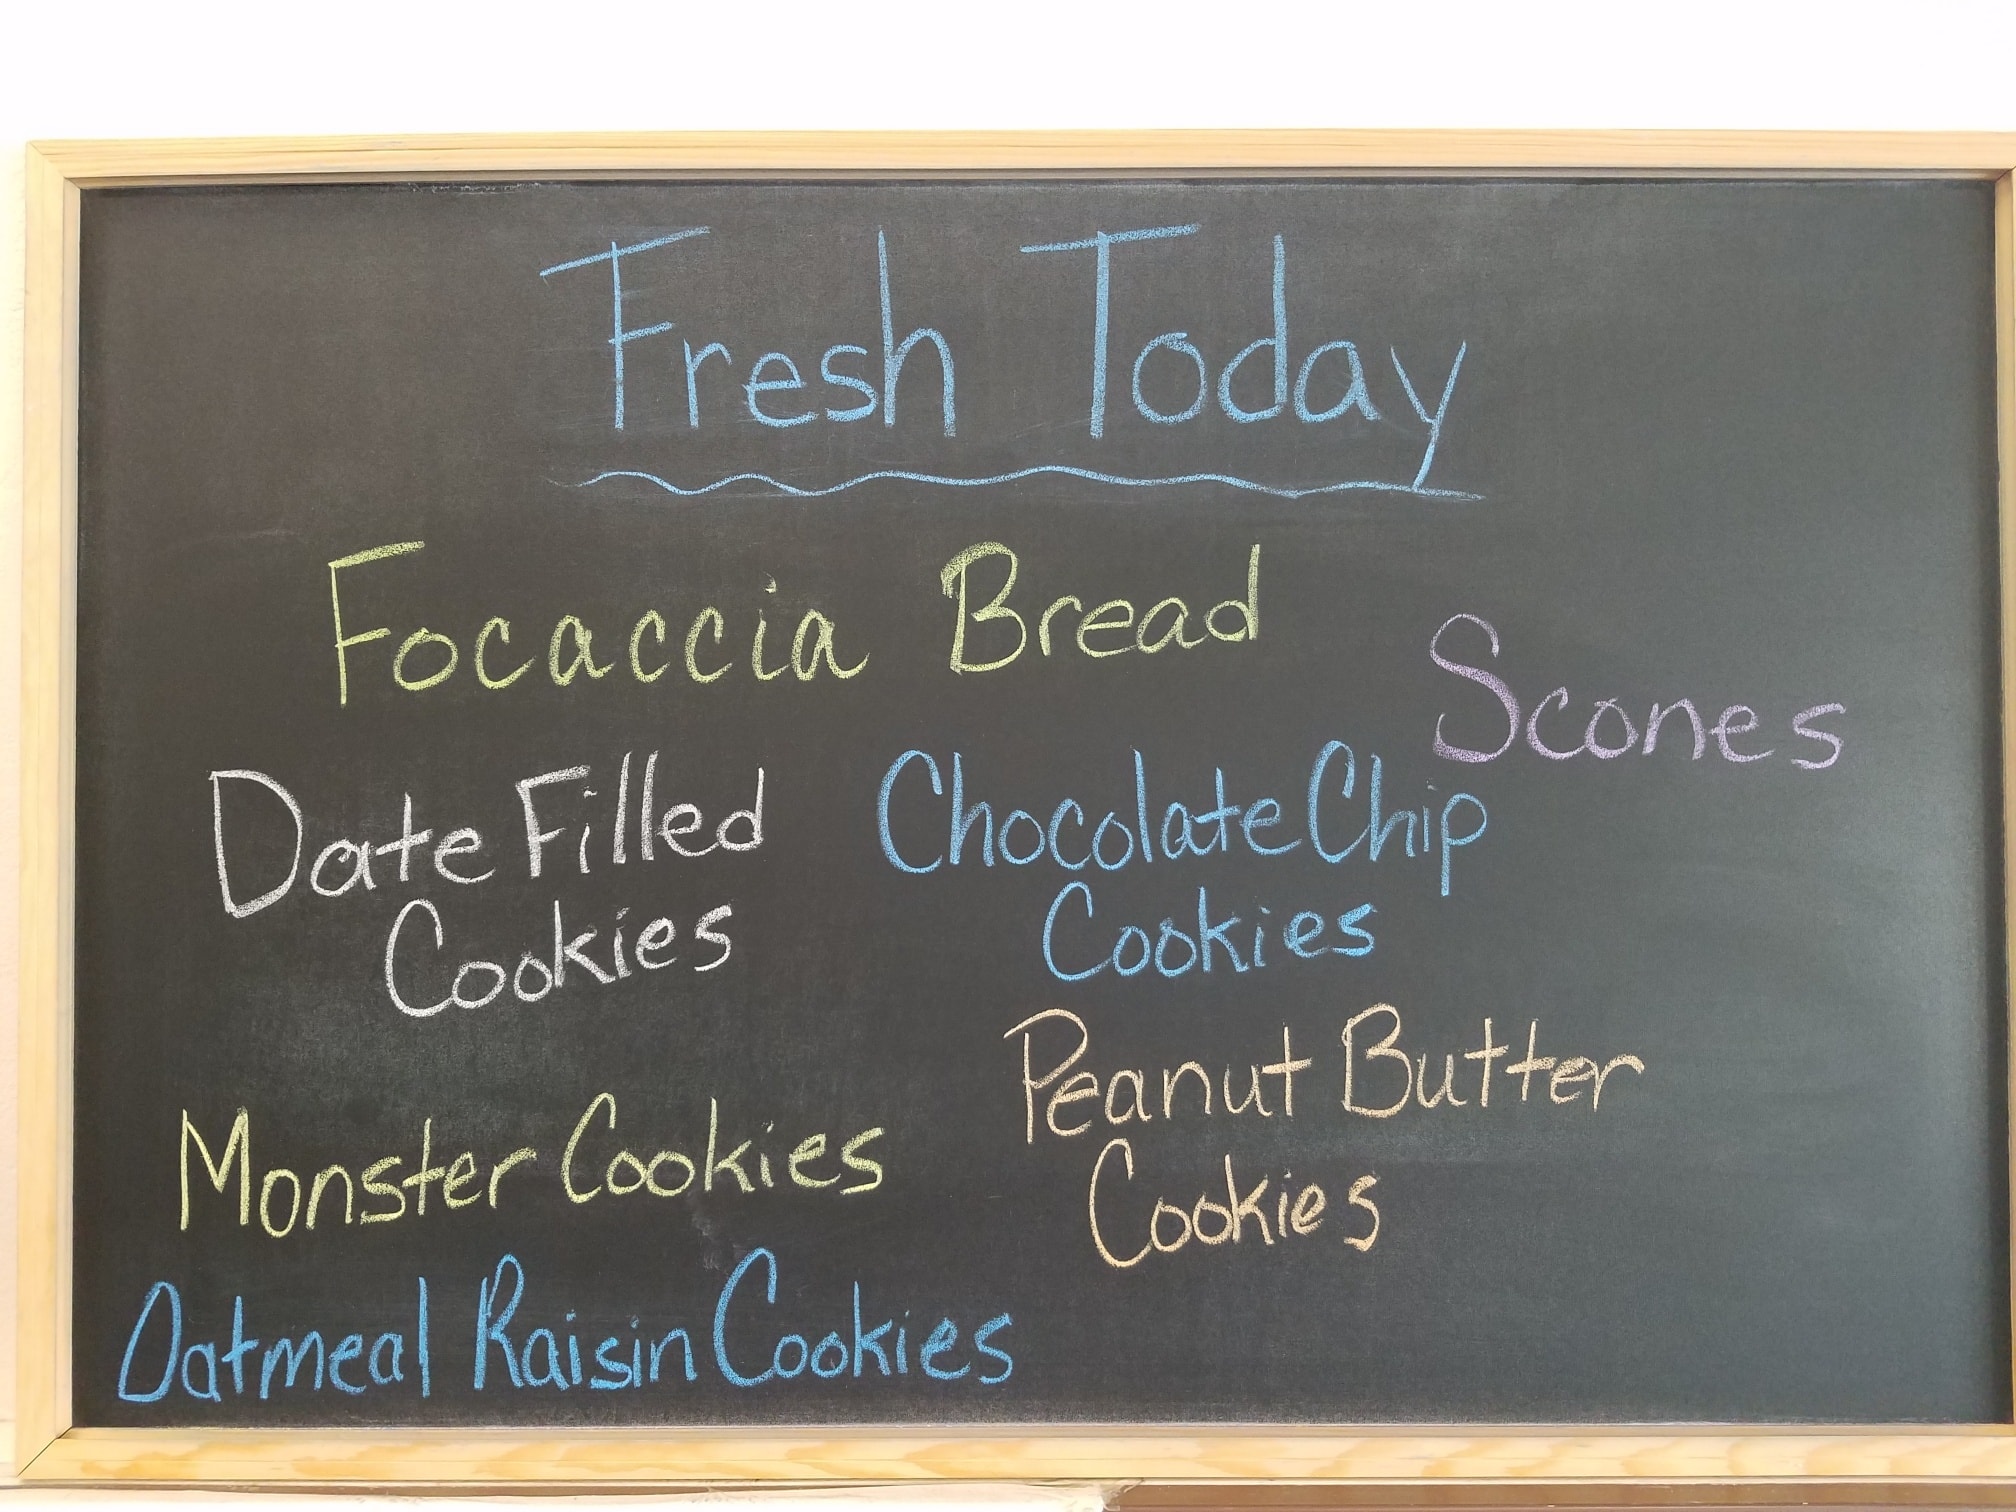 Fresh Today
Focaccia Bread
Scones
Date Filled
Cookies
Chocolate Chip
Cookies
Peanut Butter
Cookies
Monster Cookies
Oatmeal Raisin Cookies